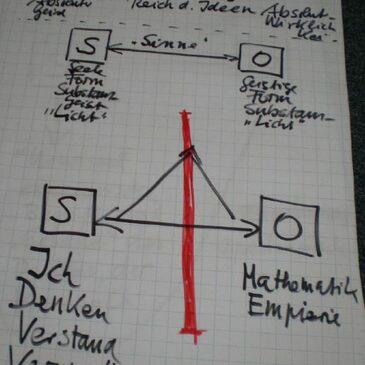 Absoluter Reich d. Ideen Absolut-
Geist Wirklich
kei
S "Sinne" O
Seele
Form
Substanz
Geist
"Licht"
geistige
Form
Substanz
"Licht"
S O
Ich
Denken
Verstand
Mathematik
Empirie